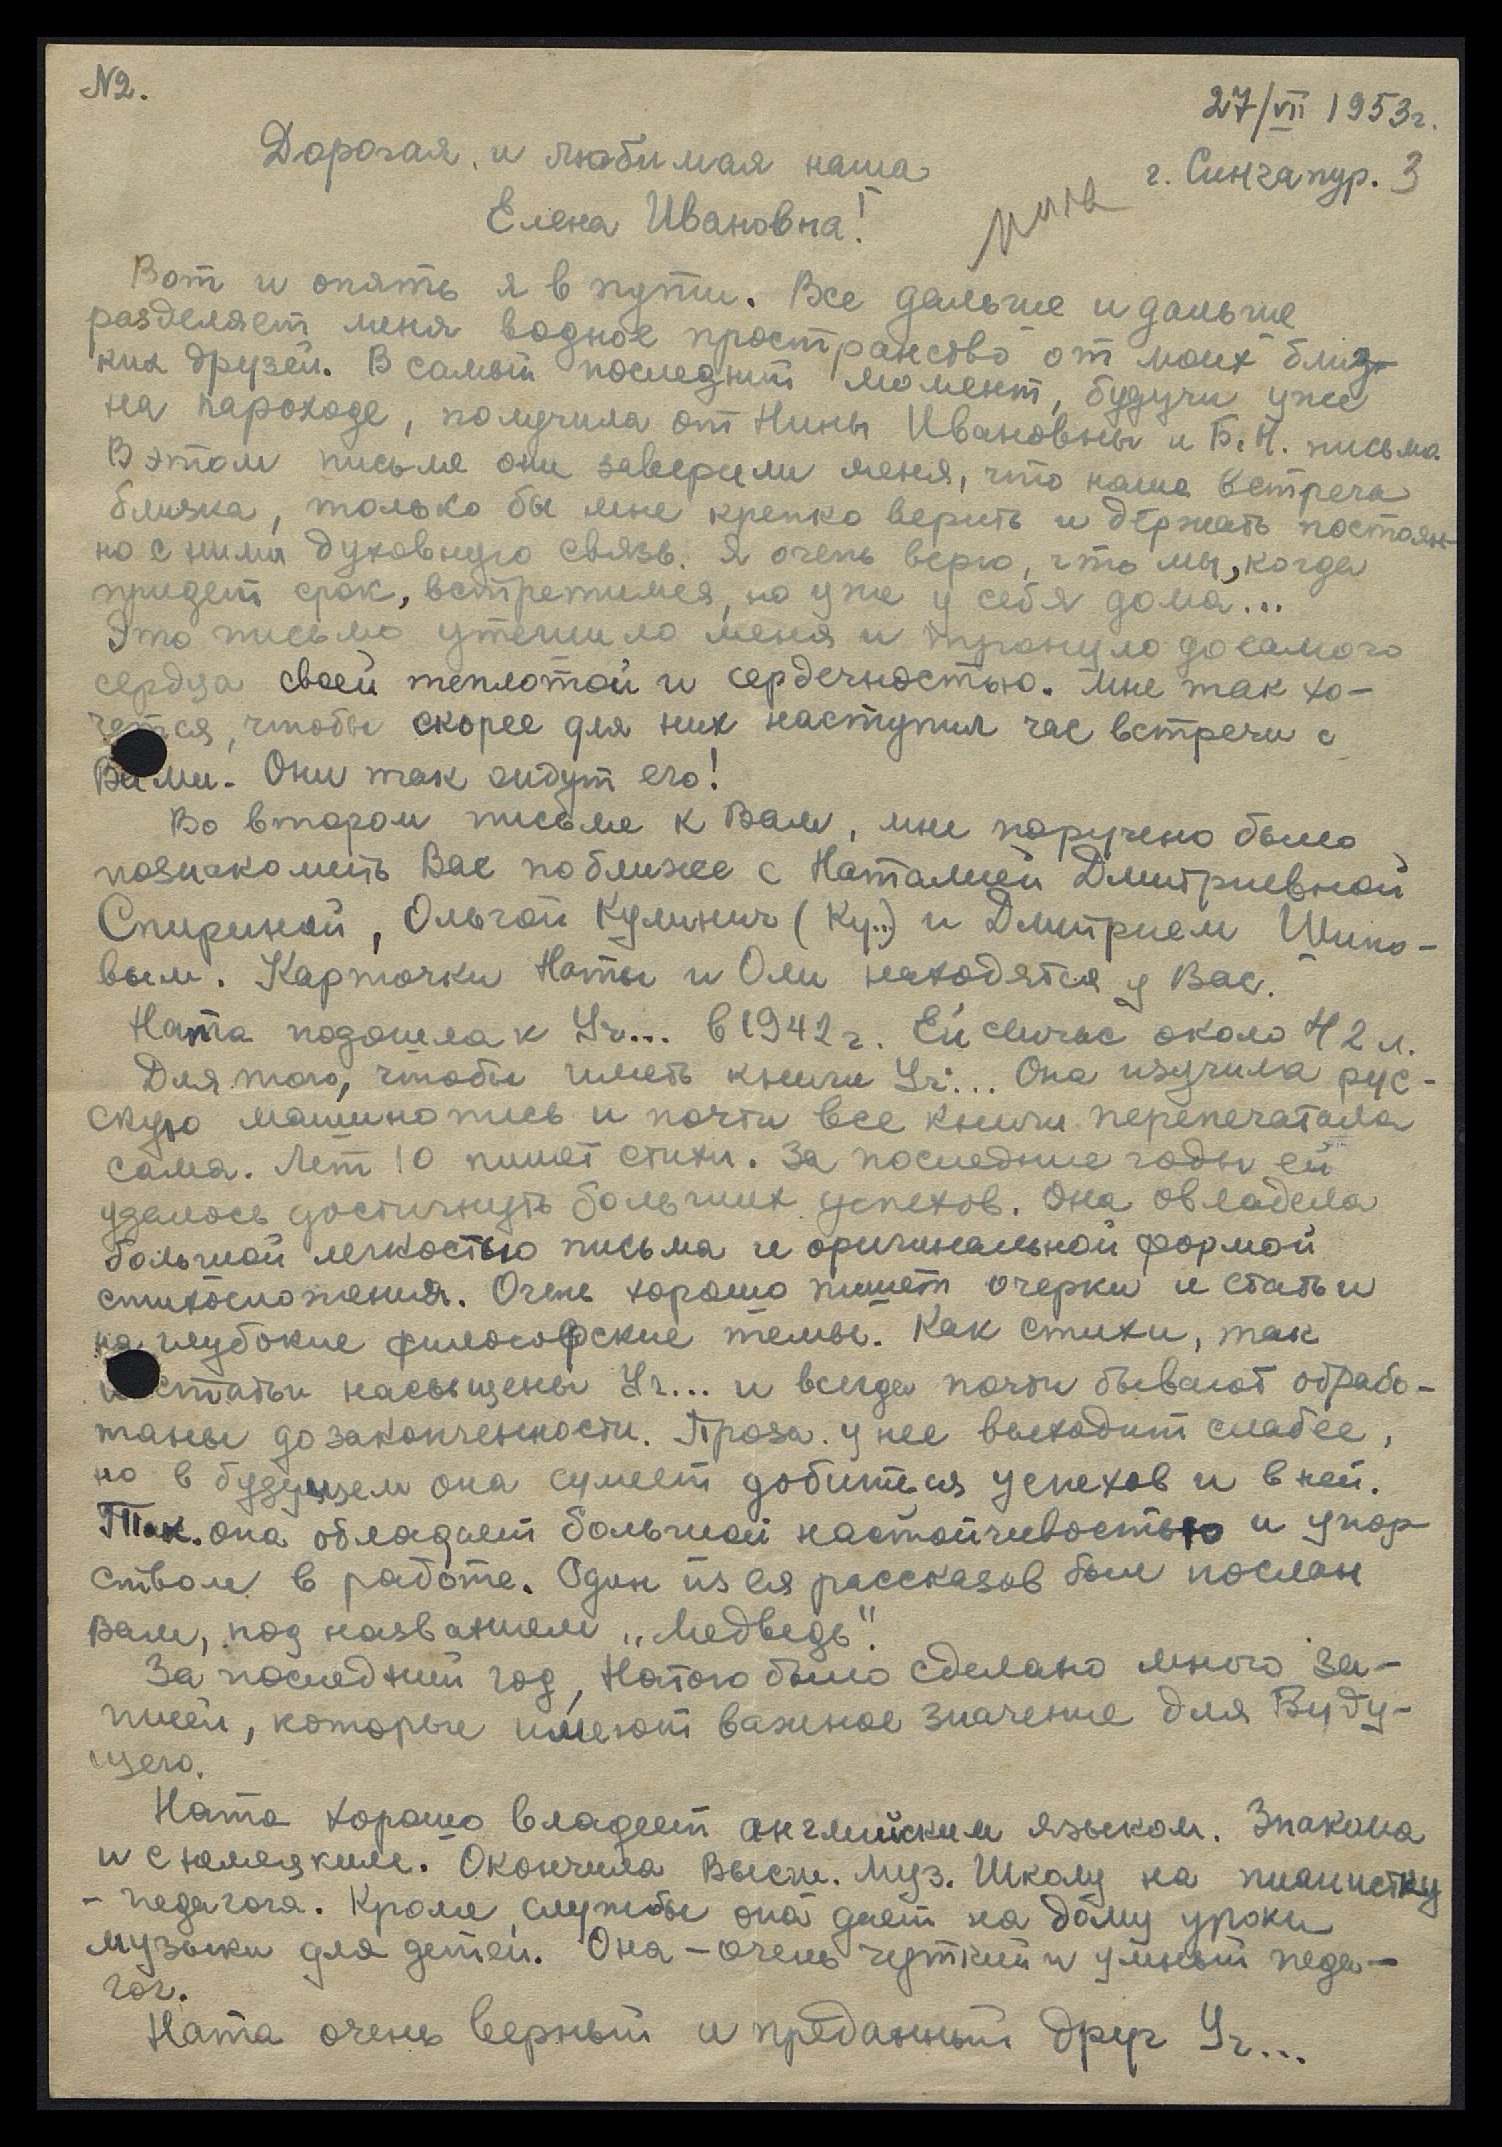 N2.
27/VII 1953г.
Дорогая и любимая наша
г. Сингапур. 3
Елена Ивановна!
Вот и опять я в пути. Все дальше и дальше
разделяет меня водное пространство от моих близ-
ких друзей. В самый последний момент, будучи уже
на пароходе, получила от Нины Ивановны и Б.Н. письма
В этом письме они заверили меня, что наша встреча
близка, только бы мне крепко верить и держать постоян-
но с ними духовную связь. Я очень верю, что мы, когда
придет срок, встретимся, но уже у себя дома...
Это письмо утешило меня и тронуло до самого
сердца своей теплотой и сердечностью. Мне так хо-
чется, чтобы скорее для них наступил час встречи с
Вами. Они так ждут его!
Во втором письме к Вам, мне поручено было
познакомить Вас поближе с Наталией Дмитриевной
Спириной, Ольгой Кулинич (Ку..) и Дмитрием Шипо-
вым. Карточки Наты и Оли находятся у Вас.
Ната подошла к Уч... в 1942 г. Ей сейчас около 42 л.
Для того, чтобы иметь книги Уч... Она изучила рус-
скую машинопись и почти все книги перепечатала
сама. Лет 10 пишет стихи. За последние годы ей
удалось достигнуть больших успехов. Она овладела
большой легкостью письма и оригинальной формой
стихосложения. Очень хорошо пишет очерки и статьи
на глубокие философские темы. Как стихи, так
и статьи насыщены Уч... и всегда почти бывают обрабо-
таны до законченности. Проза у нее выходит слабее,
но в будущем она сумеет добиться успехов и в ней.
Т.к. она обладает большой настойчивостью и упор
ством в работе. Один из ея рассказов был послан
Вам, под названием „Медведь".
За последний год, Натою было сделано много за-
писей, которые имеют важное значение для Буду-
щего.
Ната хорошо владеет английским языком. Знакома
и с немецким. Окончила Высш. Муз. Школу на пианистку
- педагога. Кроме службы она дает на дому уроки
музыки для детей. Она - очень чуткий и умный педа-
гог.
Ната очень верный и преданный друг Уч...